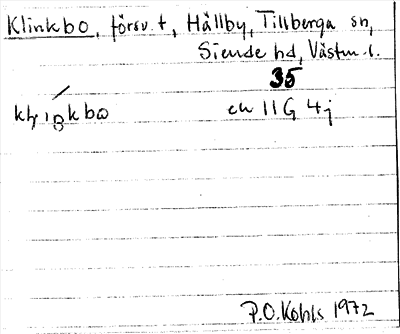 Klinkbo, försv. t, Hällby, Tillberga sn,
Siende hd, Västm. l.
35
ek 11G 4j
P.O. Kohls 1972